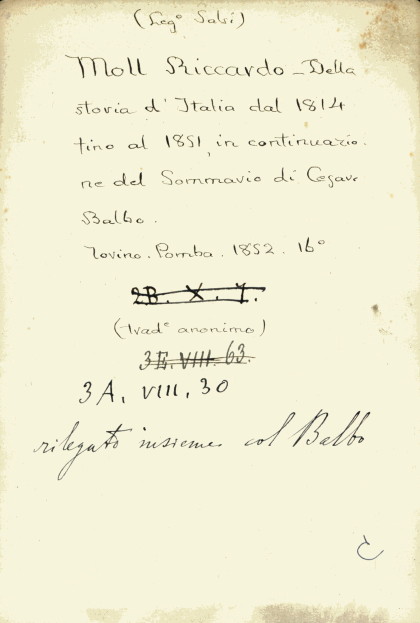 (Leg° Salvi)
Moll Riccardo - Della
storia d'Italia dal 1814
fino al 1851, in continuazio-
ne del Sommario di Cesare
Balbo.
Torino. Pomba. 1852. 16°
2B. X. 7.
(Trad.e anonimo)
3E. VIII. 63.
3A. VIII. 30
rilegato insieme col Balbo